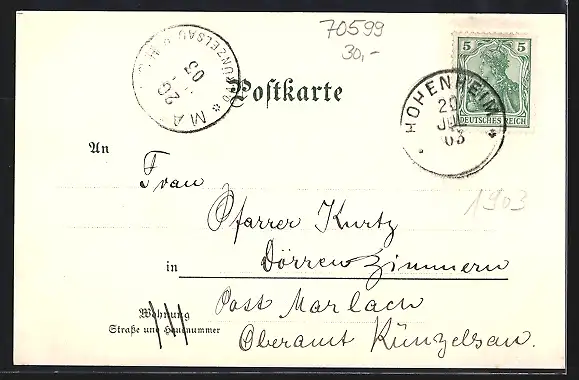 70599
30,-
KÜNZELSAU
20
03
MA
Postkarte
5 5
DEUTSCHES REICH
HOHENHEIM
20
JUL
03
An
Frau
1903
Pfarrer Kurtz
in Dörrenzimmern
Wohnung
Straße und Hausnummer
Post Marlach
Oberamt Künzelsau.